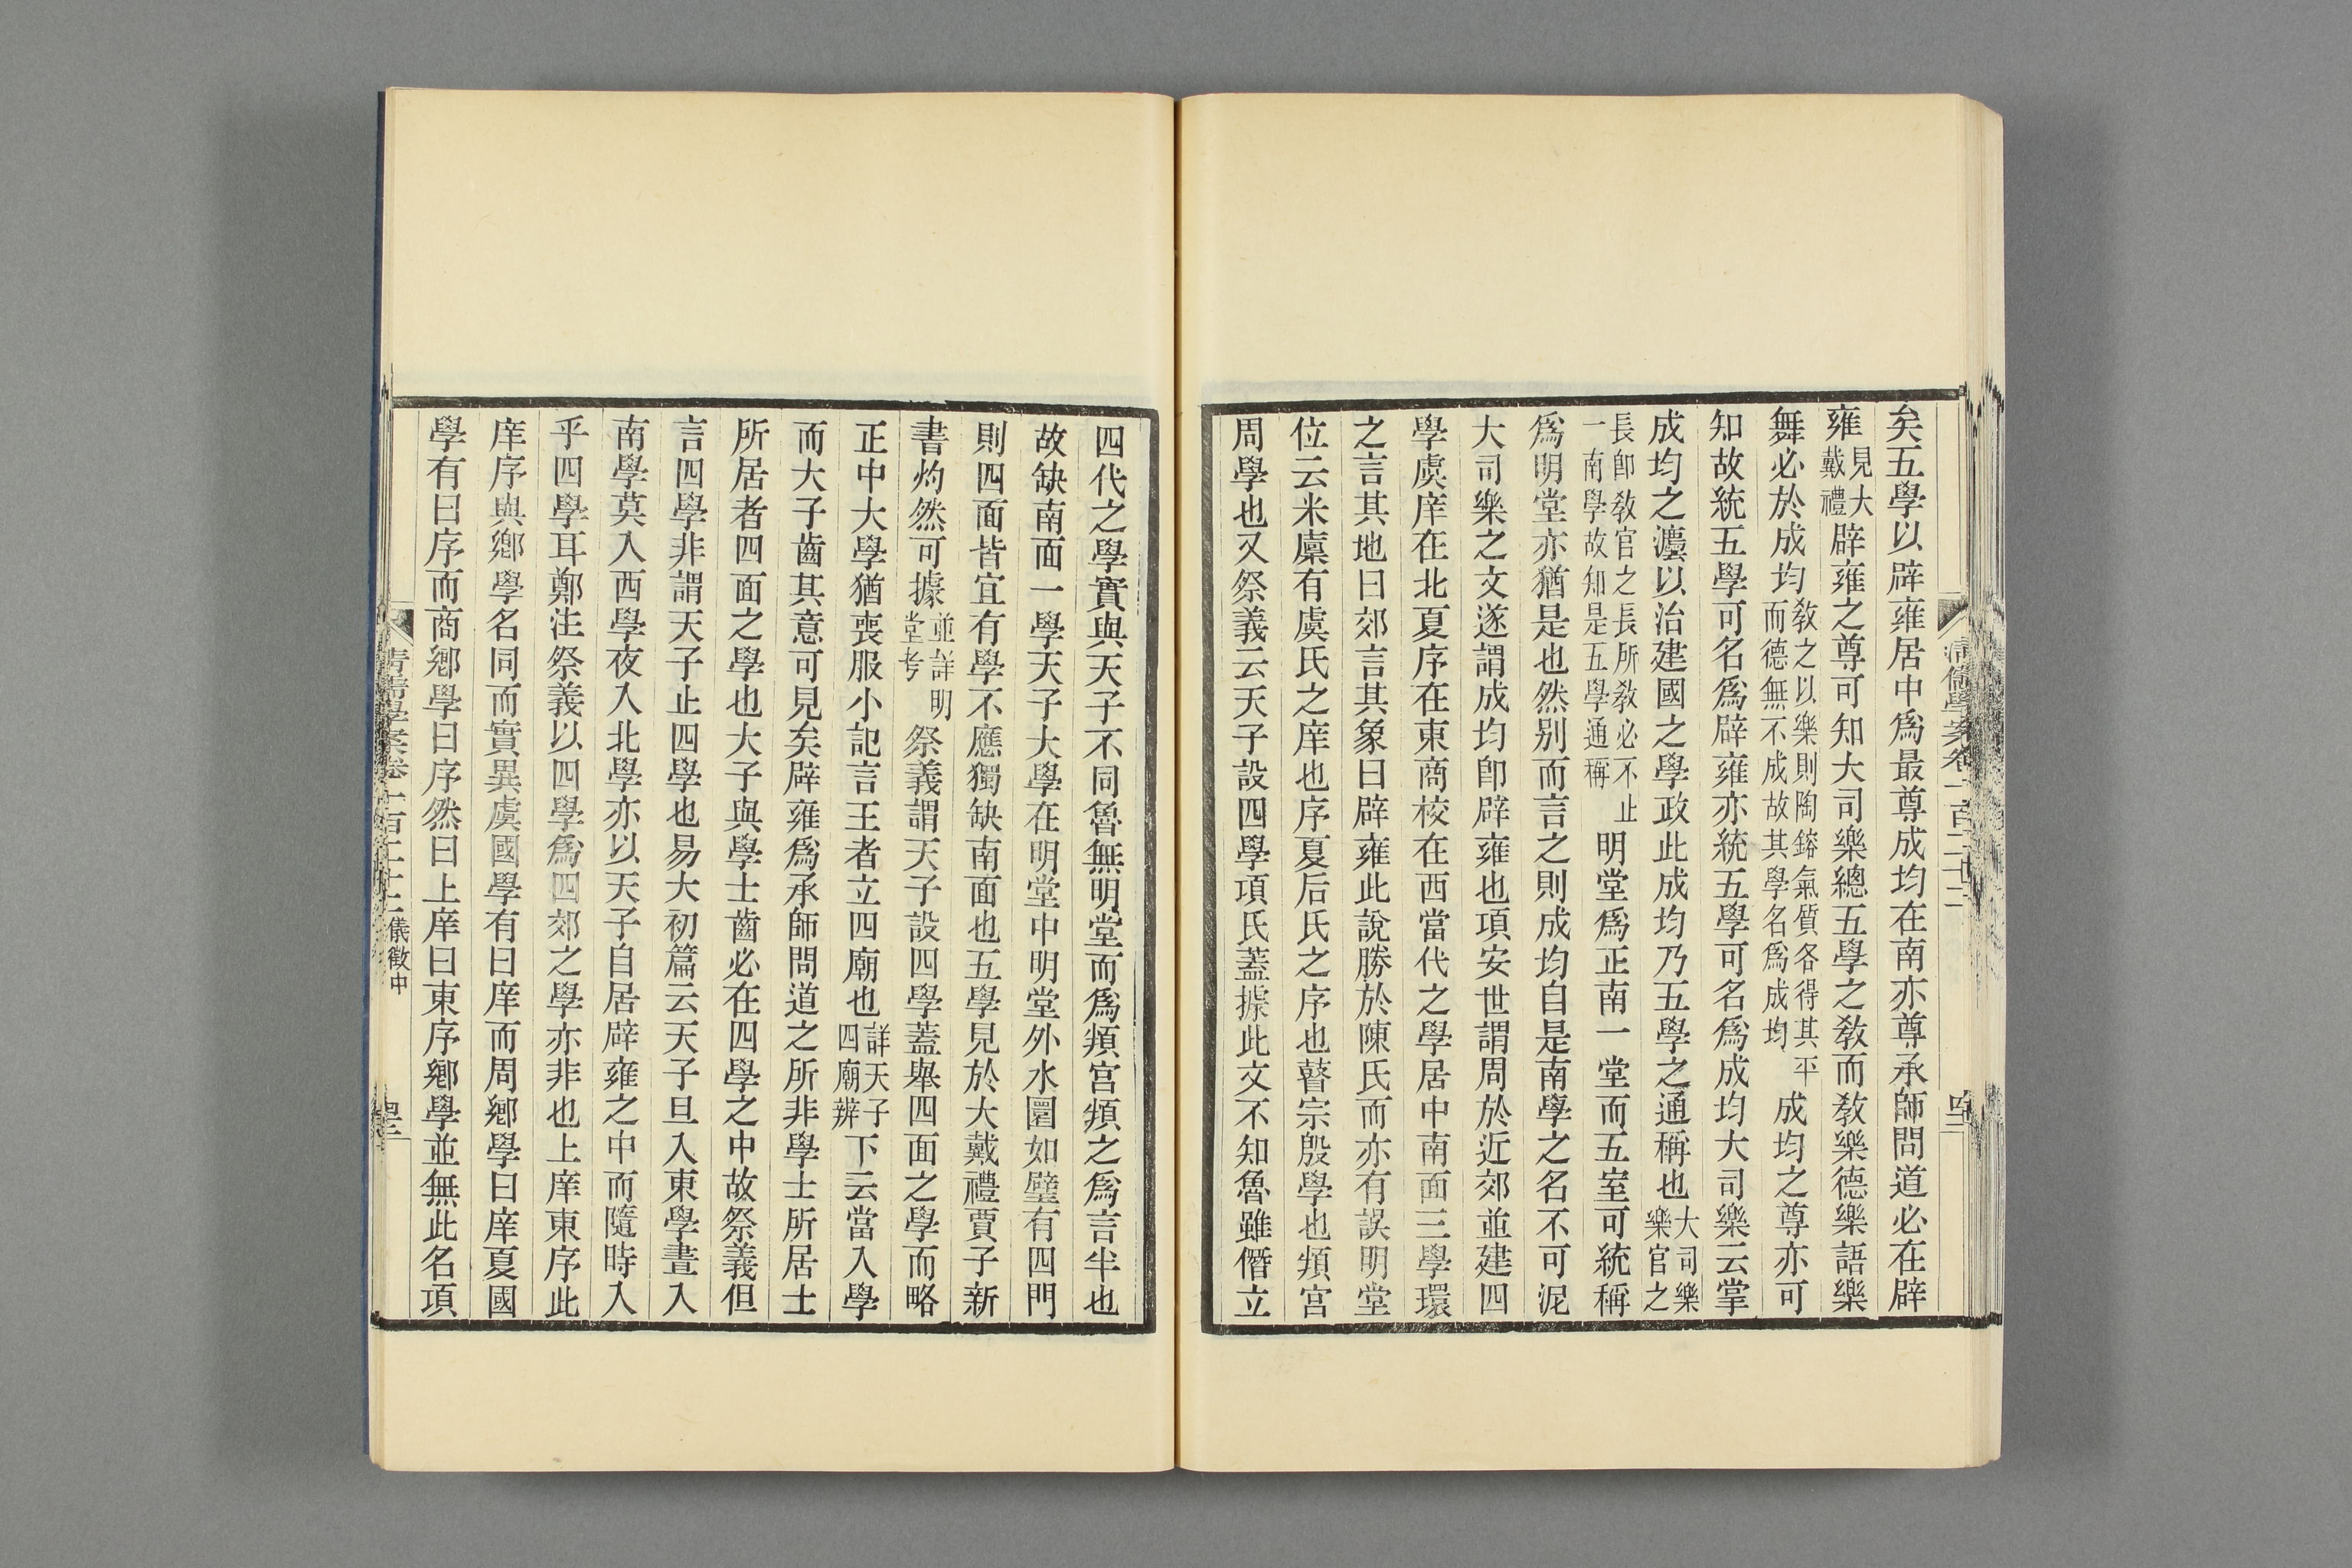 矣五學以辟雍居中爲最尊成均在南亦尊承師問道必在辟
雍見大戴禮辟雍之尊可知大司樂總五學之教而敎樂德樂語樂
舞必於成均敎之以樂則陶鎔氣質各得其平而德無不成故其學名爲成均成均之尊亦可
知故統五學可名爲辟雍亦統五學可名爲成均大司樂云掌
成均之灋以治建國之學政此成均乃五學之通稱也大司樂樂官之
長卽敎官之長所敎必不止一南學故知是五學通稱明堂爲正南一堂而五室可統稱
爲明堂亦猶是也然别而言之則成均自是南學之名不可泥
大司樂之文遂謂成均卽辟雍也項安世謂周於近郊並建四
學虞庠在北夏序在東商校在西當代之學居中南面三學環
之言其地曰郊言其象曰辟雍此說勝於陳氏而亦有誤明堂
位云米廩有虞氏之庠也序夏后氏之序也瞽宗殷學也頖宮
周學也又祭義云天子設四學項氏蓋據此文不知魯雖僭立
四代之學實與天子不同魯無明堂而爲頖宮頖之爲言半也
故缺南面一學天子大學在明堂中明堂外水圜如璧有四門
則四面皆宜有學不應獨缺南面也五學見於大戴禮賈子新
書灼然可據並詳明堂考祭義謂天子設四學蓋舉四面之學而略
正中大學猶喪服小記言王者立四廟也詳天子四廟辨下云當入學
而大子齒其意可見矣辟雍爲承師問道之所非學士所居士
所居者四面之學也大子與學士齒必在四學之中故祭義但
言四學非謂天子止四學也易大初篇云天子旦入東學晝入
南學莫入西學夜入北學亦以天子自居辟雍之中而隨時入
乎四學耳鄭注祭義以四學爲四郊之學亦非也上庠東序此
庠序與鄉學名同而實異虞國學有曰庠而周鄉學曰庠夏國
學有曰序而商鄉學曰序然曰上庠曰東序鄉學並無此名項
清儒學案卷一百二十二儀徵中